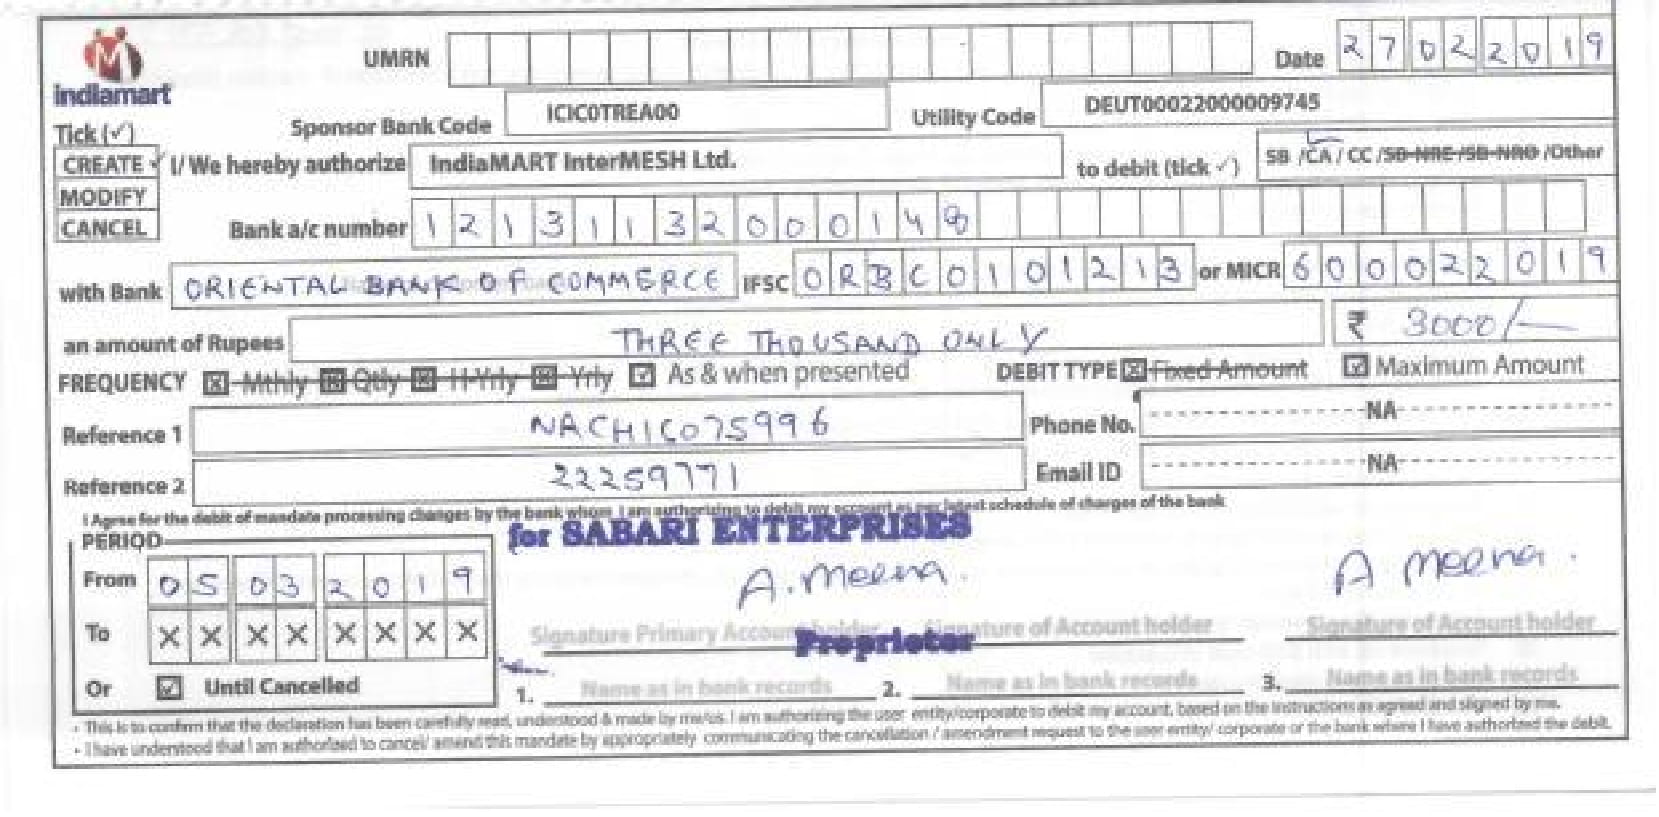 indiamart
UMRN Date 27022019
Tick (✓) Sponsor Bank Code ICIC0TREA00 Utility Code DEUT00022000009745
CREATE ✓ I/ We hereby authorize IndiaMART InterMESH Ltd. to debit (tick ✓) SB /CA / CC /SB-NRE /SB-NRO /Other
MODIFY
CANCEL Bank a/c number 12131132000148
with Bank ORIENTAL BANK OF COMMERCE IFSC ORBC0101213 or MICR 600022019
an amount of Rupees THREE THOUSAND ONLY ₹ 3000/-
FREQUENCY ☒ Mthly ☒ Qtly ☒ H-Yrly ☒ Yrly ☑ As & when presented DEBIT TYPE ☒ Fixed Amount ☑ Maximum Amount
Reference 1 NACHIC075996 Phone No. NA
Reference 2 22259771 Email ID NA
I Agree for the debit of mandate processing changes by the bank whom I am authorizing to debit my account as per latest schedule of charges of the bank
PERIOD for SABARI ENTERPRISES
From 05032019 A. Meena. A Meena.
To XXXXXXXX Signature Primary Account holder Signature of Account holder Signature of Account holder
Proprietor
Or ☑ Until Cancelled 1. Name as in bank records 2. Name as in bank records 3. Name as in bank records
- This is to confirm that the declaration has been carefully read, understood & made by me/us. I am authorizing the user entity/corporate to debit my account, based on the instructions as agreed and signed by me.
- I have understood that I am authorized to cancel/ amend this mandate by appropriately communicating the cancellation / amendment request to the user entity/ corporate or the bank where I have authorized the debit.